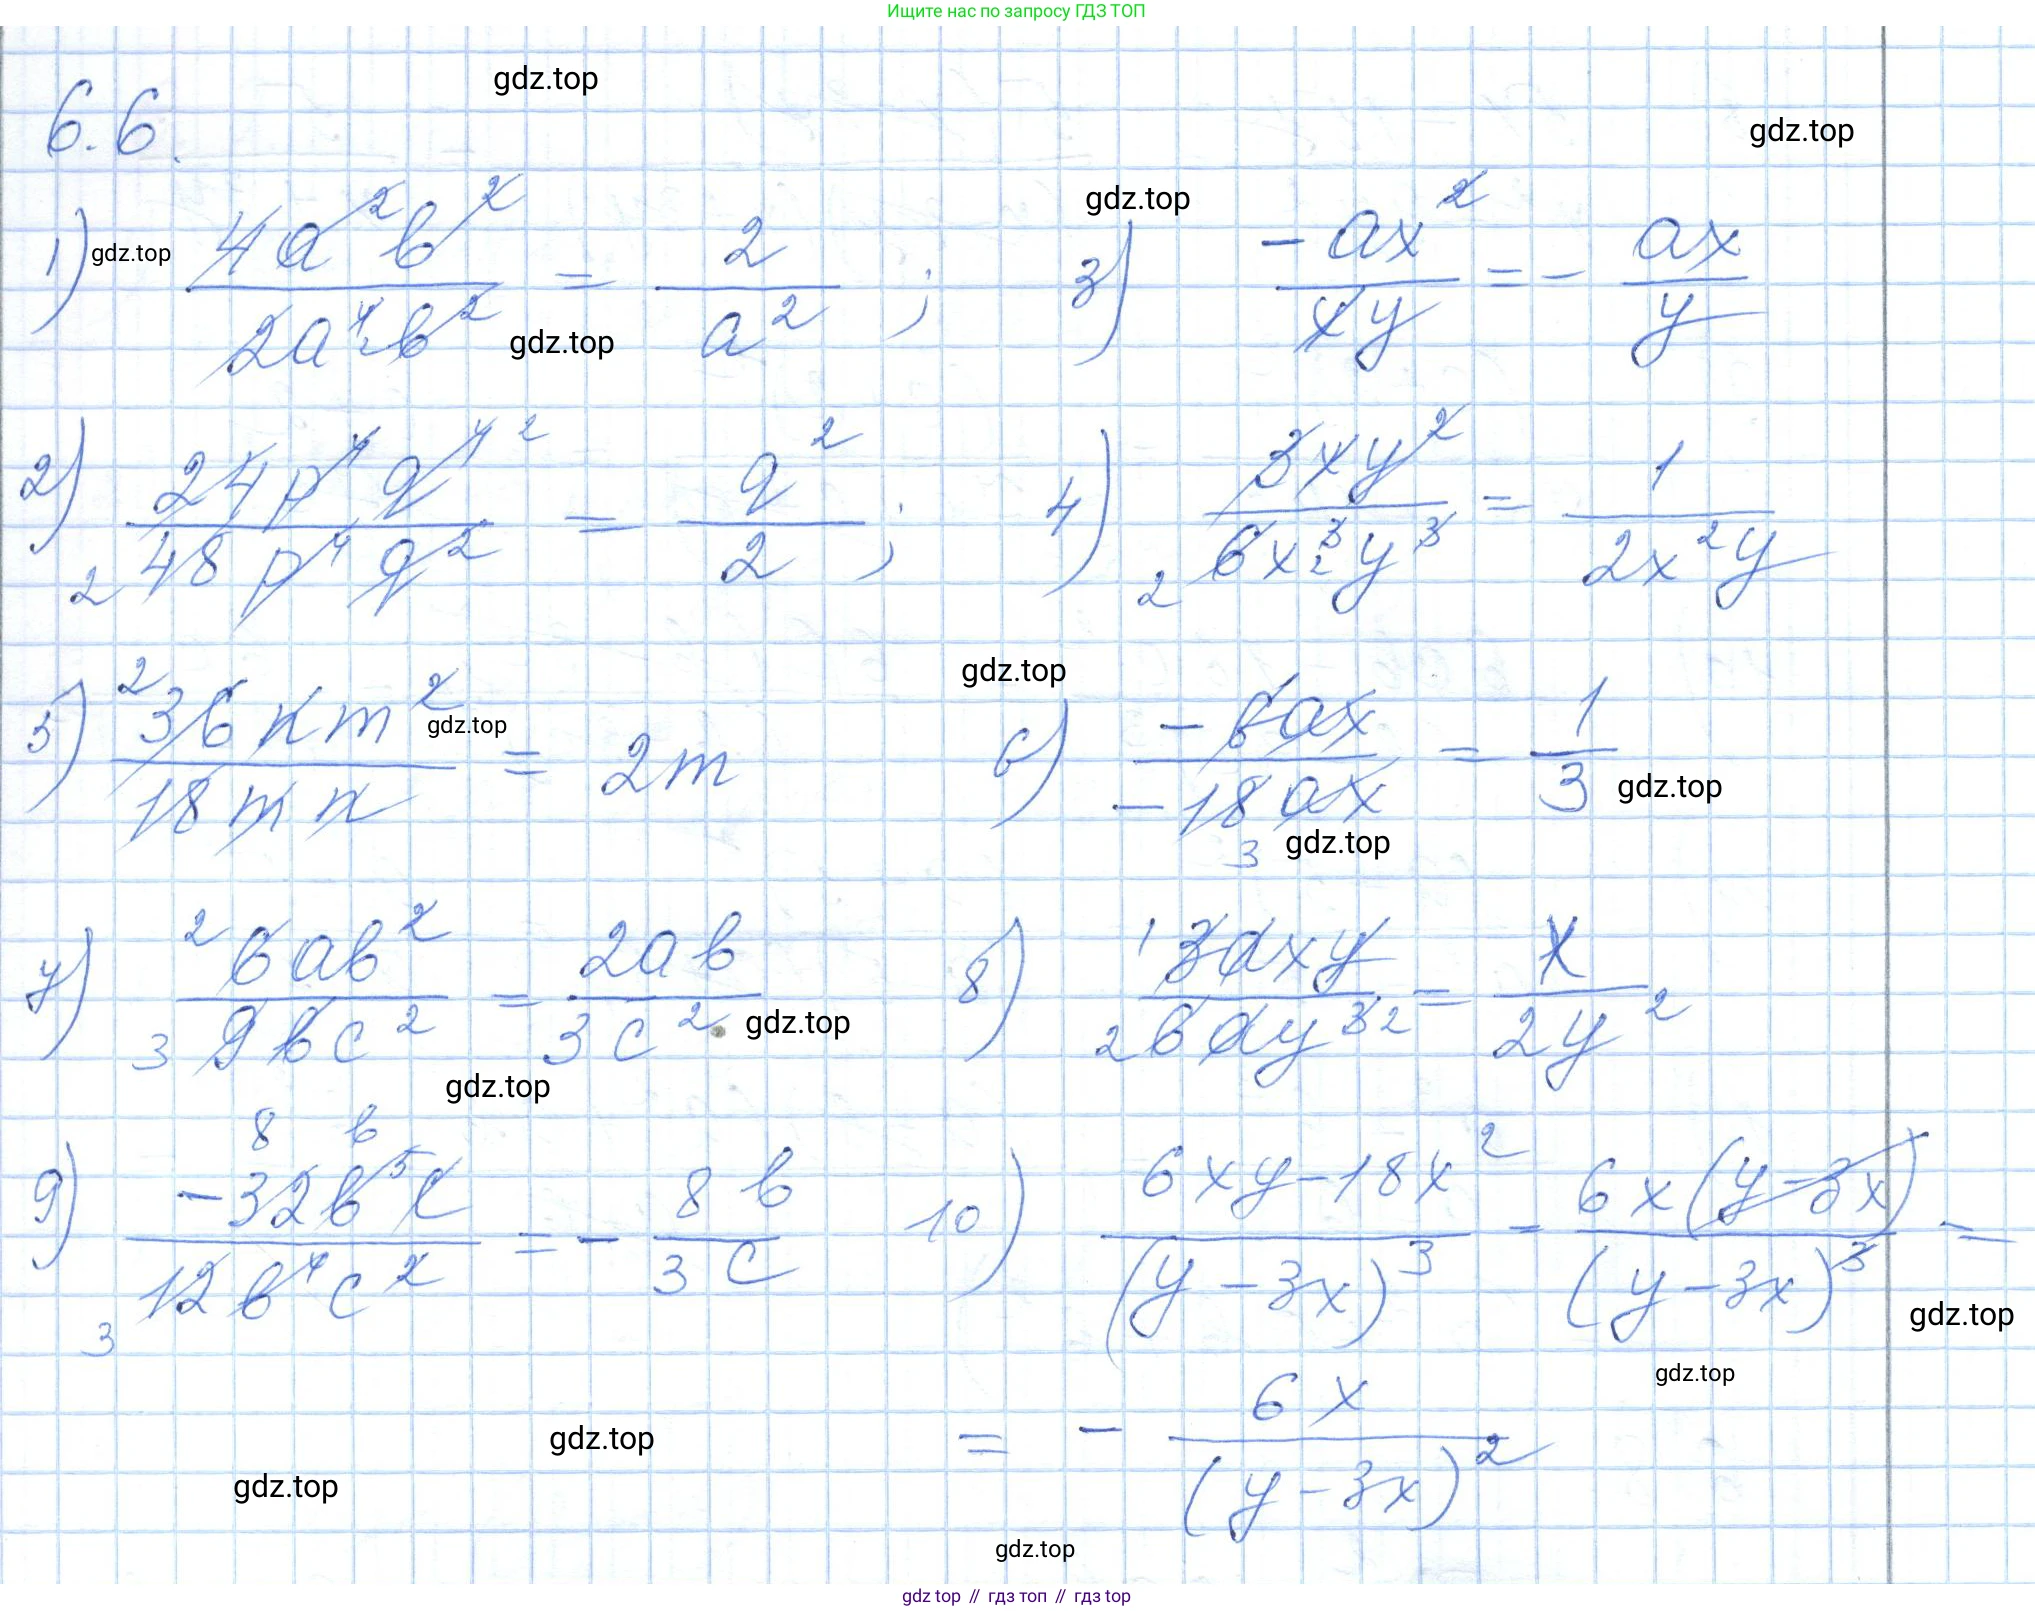 Ищите нас по запросу ГДЗ ТОП
gdz.top
6.6.
gdz.top
1) gdz.top 4a²b² / 2a⁴b² = 2 / a² ; gdz.top 3) -ax² / xy = - ax / y
2 gdz.top
2) 24p⁴q⁴ ² / 2 48p⁴q² = q² / 2 ; 4) 3xy² / 2 6x³ 2 y³ = 1 / 2x²y
gdz.top
5) 2 36nm² / 18mn = 2m gdz.top 6) -6ax / -18ax 3 = 1 / 3 gdz.top
gdz.top
7) 2 6ab² / 3 9bc² = 2ab / 3c² gdz.top 8) 1 3axy / 2 6ay³ 2 = x / 2y²
gdz.top
8 b
9) -32b⁵c / 3 12b⁴c² = - 8b / 3c 10) 6xy-18x² / (y-3x)³ = 6x(y-3x) / (y-3x)³ =
gdz.top
gdz.top
= - 6x / (y-3x)²
gdz.top
gdz.top
gdz.top
gdz top // гдз топ // гдз top